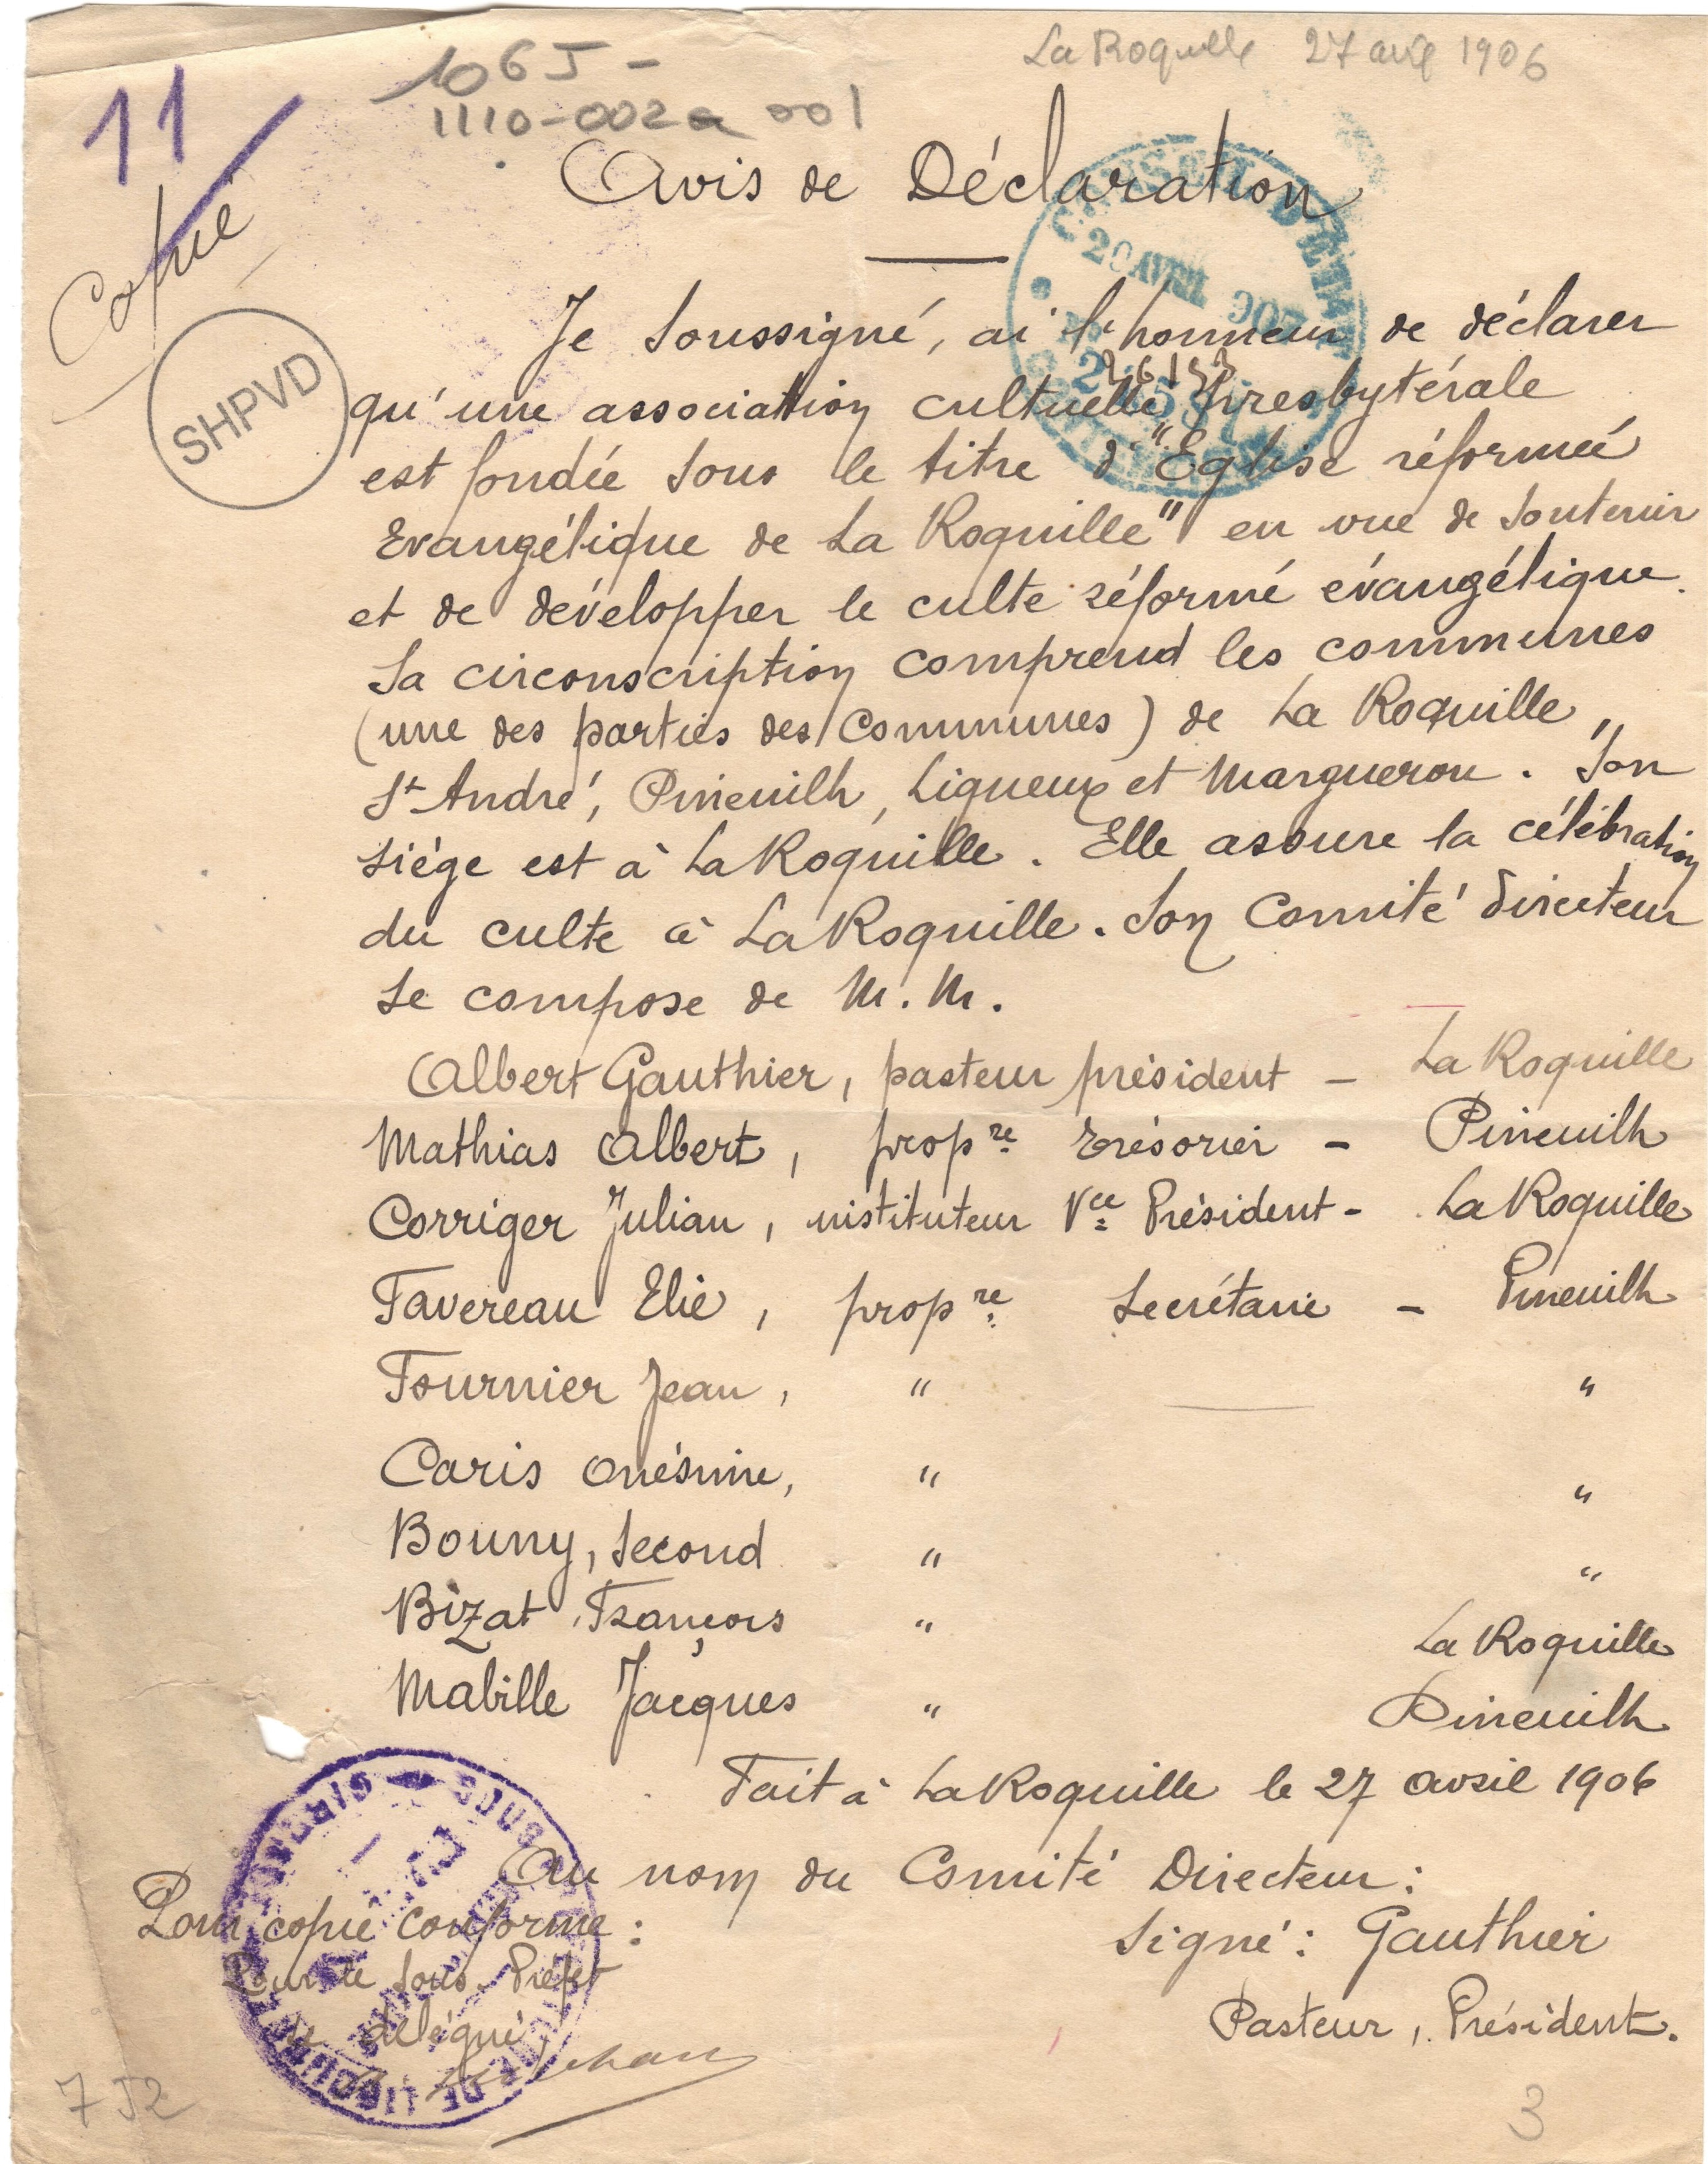 La Roquille 27 avril 1906
106J -
1110-002a 001
11
Copie
SHPVD
Avis de Déclaration
CONSEIL D'ETAT
20 AVRIL 907
Je soussigné, ai l'honneur de déclarer
qu'une association cultuelle presbytérale
est fondée sous le titre d'"Eglise réformée
Evangélique de La Roquille" en vue de soutenir
et de développer le culte réformé évangélique.
Sa circonscription comprend les communes
(une des parties des communes) de La Roquille,
St André, Pineuilh, Ligueux et Margueron. Son
siège est à La Roquille. Elle assure la célébration
du culte à La Roquille. Son Comité directeur
se compose de M.M.
Albert Gauthier, pasteur président - La Roquille
Mathias Albert, propre trésorier - Pineuilh
Corriger Julian, instituteur Vce Président - La Roquille
Favereau Elie, propre Secrétaire - Pineuilh
Fournier Jean, " "
Caris Onésime, " "
Bouny, Second " "
Bizat, François " La Roquille
Mabille Jacques " Pineuilh
Fait à La Roquille le 27 avril 1906
Au nom du Comité Directeur :
Pour copie conforme :
Signé : Gauthier
Pour le Sous-Préfet
Pasteur, Président.
délégué
7 J2
3